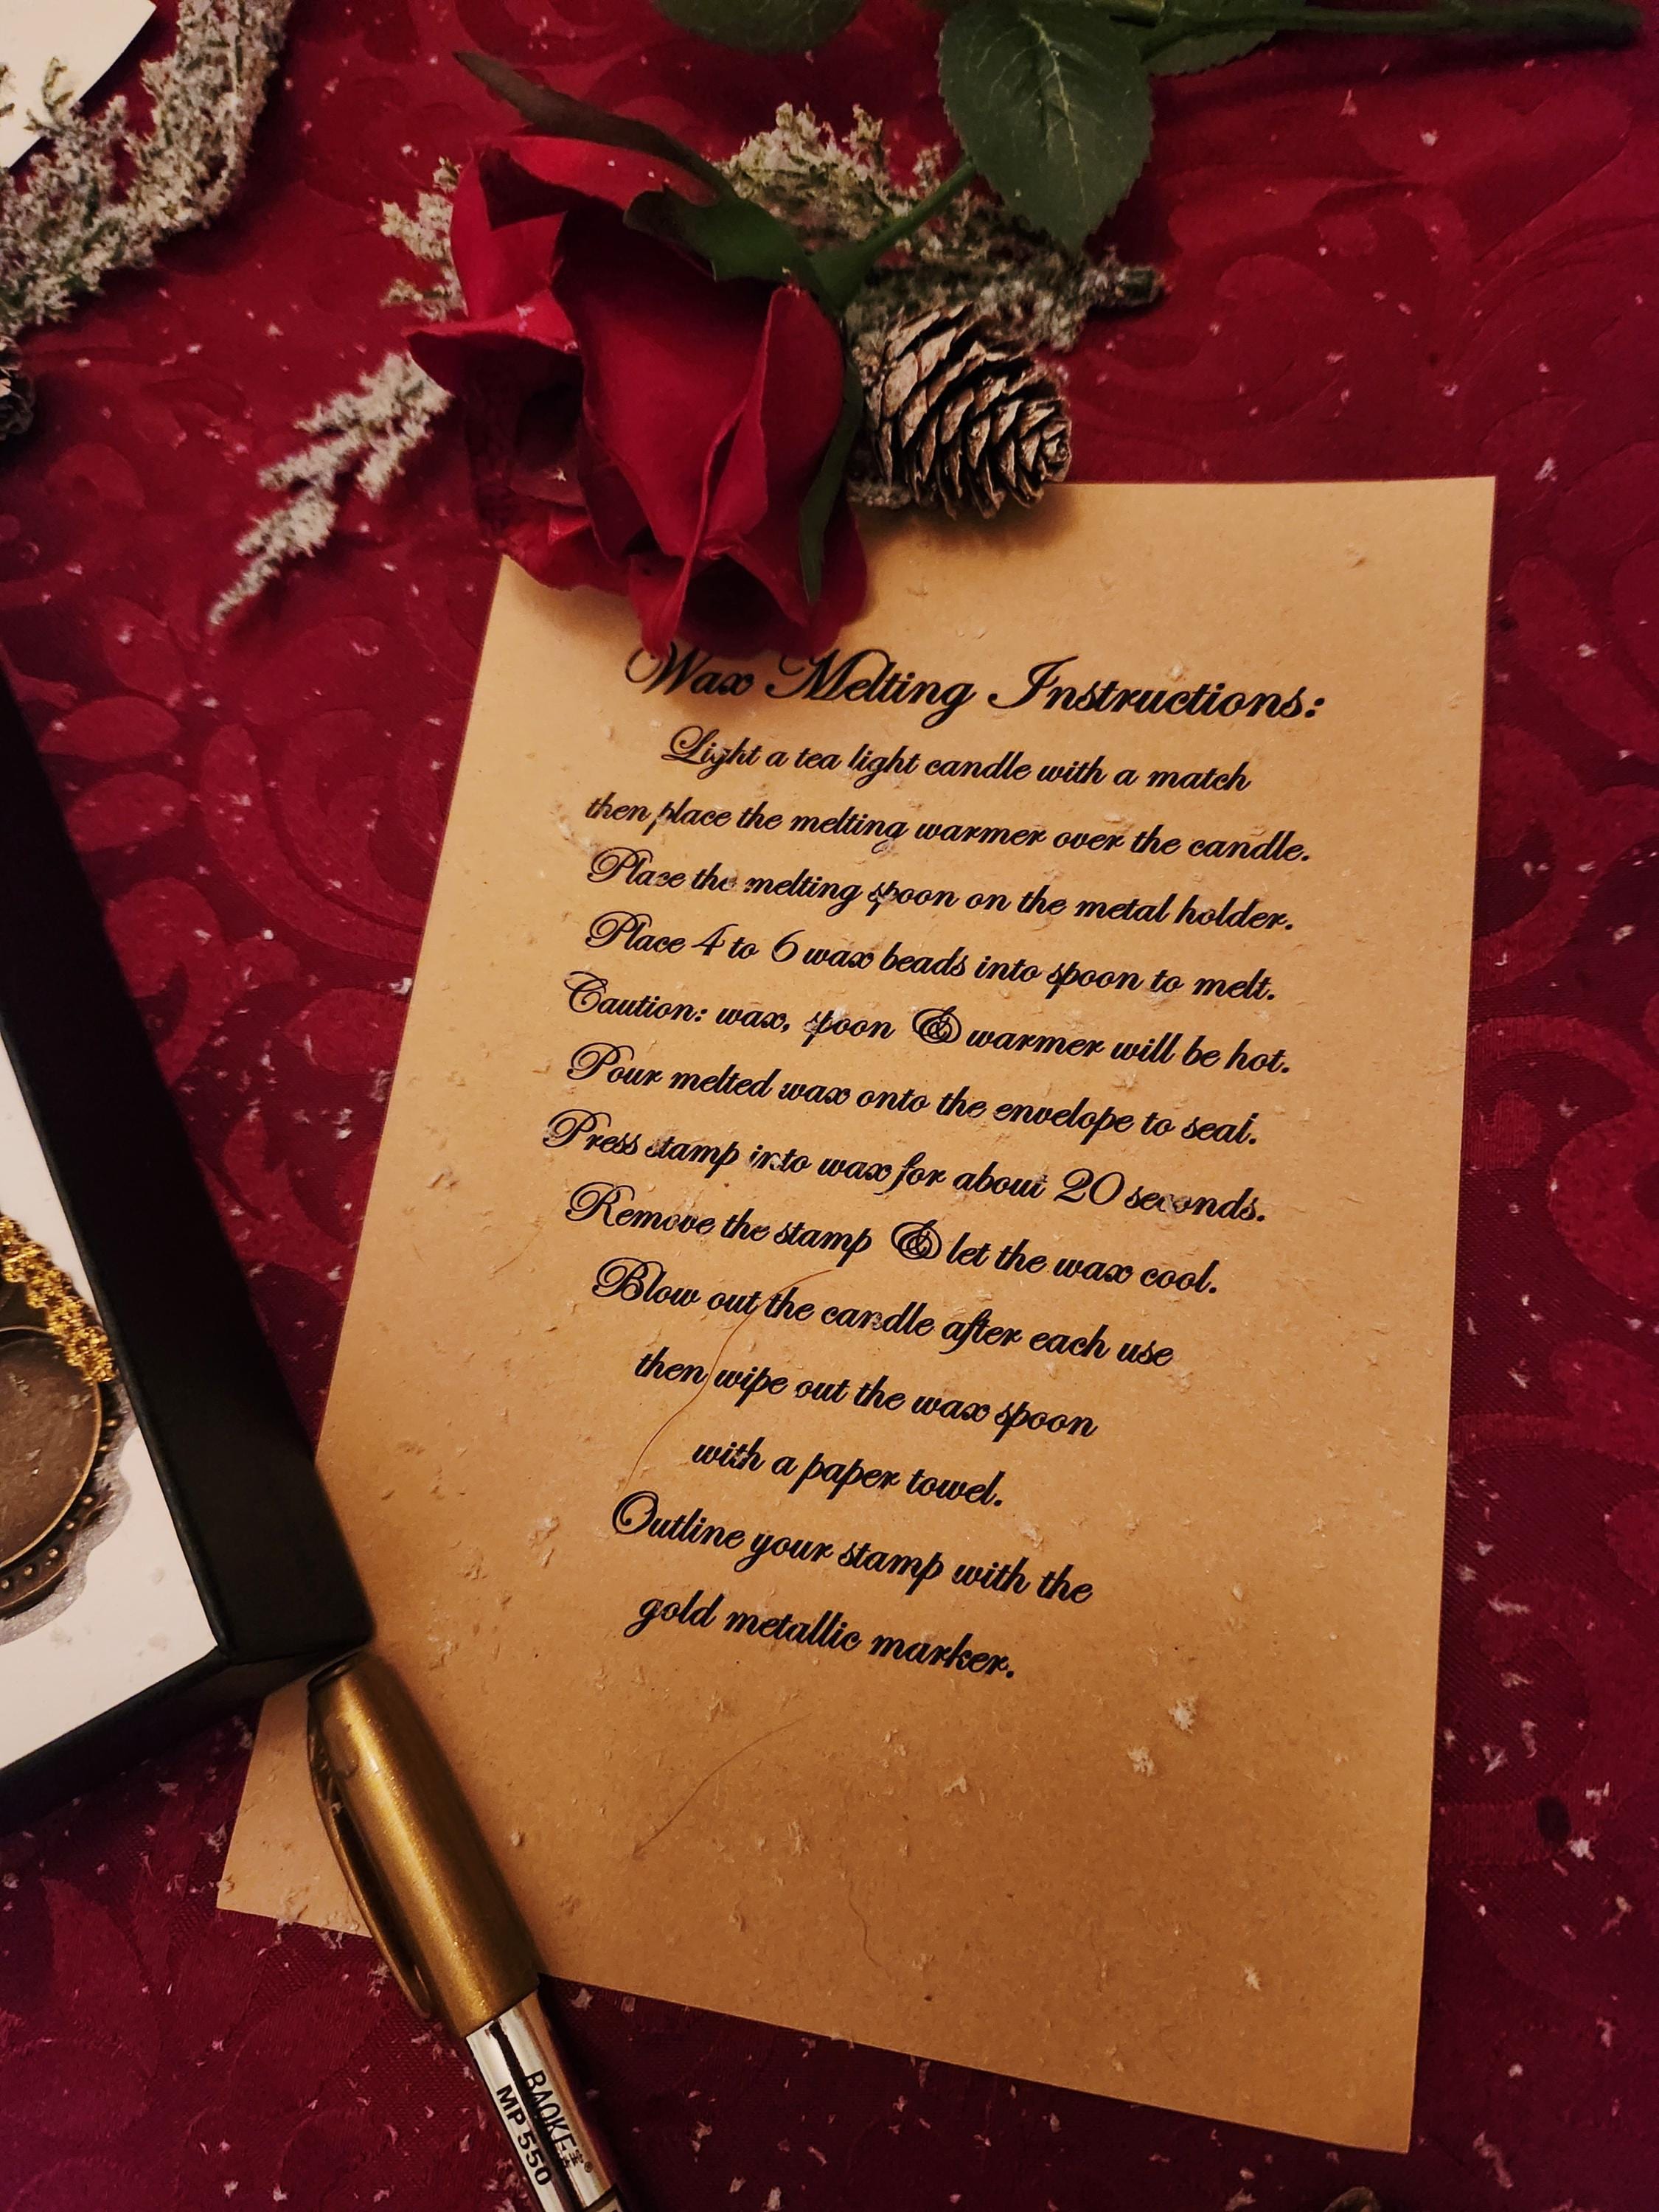 Wax Melting Instructions:
Light a tea light candle with a match
then place the melting warmer over the candle.
Place the melting spoon on the metal holder.
Place 4 to 6 wax beads into spoon to melt.
Caution: wax, spoon & warmer will be hot.
Pour melted wax onto the envelope to seal.
Press stamp into wax for about 20 seconds.
Remove the stamp & let the wax cool.
Blow out the candle after each use
then wipe out the wax spoon
with a paper towel.
Outline your stamp with the
gold metallic marker.
BAOKE®
MP550